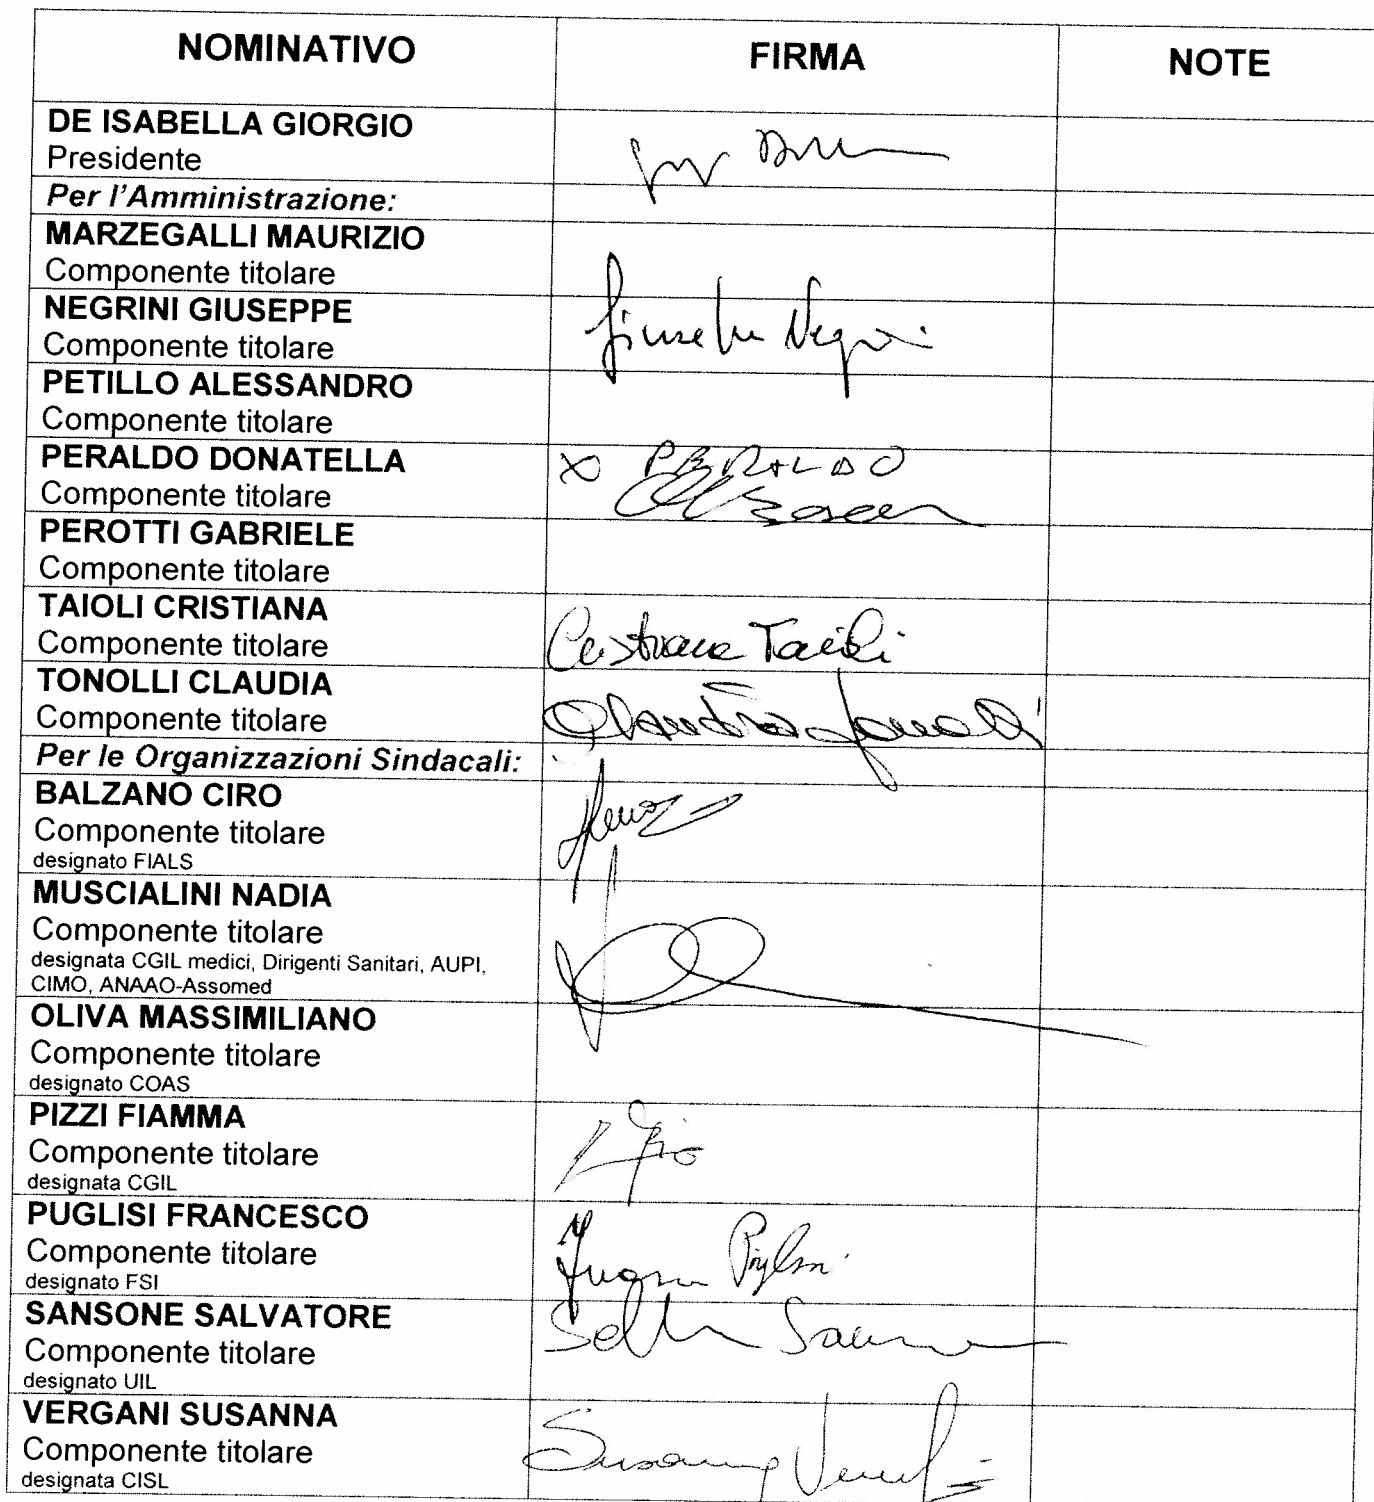 NOMINATIVO FIRMA NOTE
DE ISABELLA GIORGIO
Presidente
Per l'Amministrazione:
MARZEGALLI MAURIZIO
Componente titolare
NEGRINI GIUSEPPE
Componente titolare
Giuseppe Negrini
PETILLO ALESSANDRO
Componente titolare
PERALDO DONATELLA
Componente titolare
X PERALDO
PEROTTI GABRIELE
Componente titolare
TAIOLI CRISTIANA
Componente titolare
Cristiana Taioli
TONOLLI CLAUDIA
Componente titolare
Claudia Tonolli
Per le Organizzazioni Sindacali:
BALZANO CIRO
Componente titolare
designato FIALS
MUSCIALINI NADIA
Componente titolare
designata CGIL medici, Dirigenti Sanitari, AUPI,
CIMO, ANAAO-Assomed
OLIVA MASSIMILIANO
Componente titolare
designato COAS
PIZZI FIAMMA
Componente titolare
designata CGIL
PUGLISI FRANCESCO
Componente titolare
designato FSI
SANSONE SALVATORE
Componente titolare
designato UIL
VERGANI SUSANNA
Componente titolare
designata CISL
Susanna